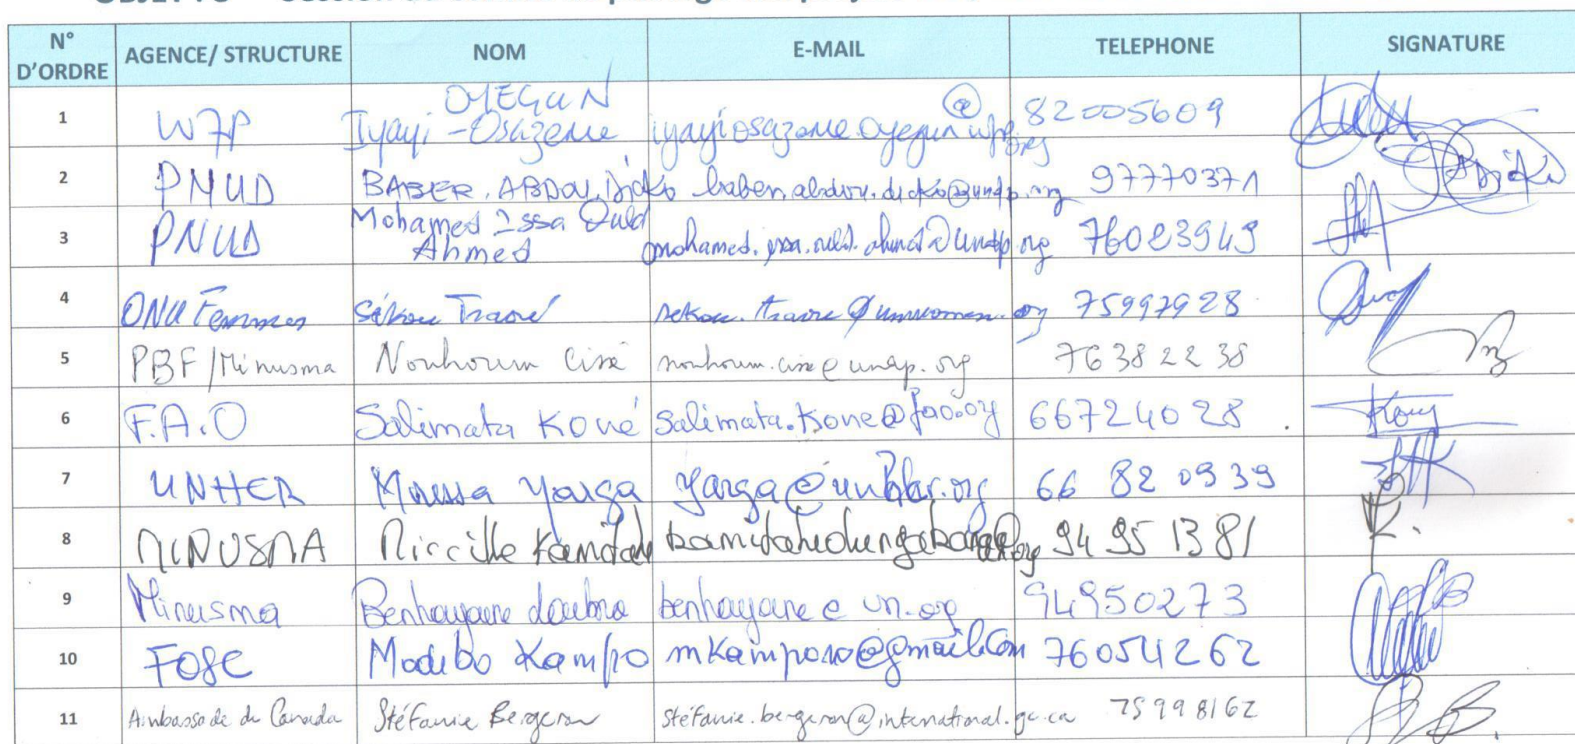 N° D'ORDRE AGENCE/ STRUCTURE NOM E-MAIL TELEPHONE SIGNATURE
1 WFP Iyayi-Osazeme OYEGUN iyayiosazeme.oyegun@wfp.org 82005609
2 PNUD BABER, ABDOU, Dicko baber.abdou.dicko@undp.org 97770371
3 PNUD Mohamed Issa Ould Ahmed mohamed.issa.ould.ahmed@undp.org 76023949
4 ONU Femmes Sékou Traoré sekou.traore@unwomen.org 75997928
5 PBF/Minusma Nouhoum Cissé 76382238
6 F.A.O Salimata Koné Salimata.Kone@fao.org 66724028
7 UNHCR Moussa Yarga Yarga@unhcr.org 66 82 09 39
8 MINUSMA 94 95 13 81
9 Minusma Benhayoune benhayoune@un.org 94950273
10 FOSC Modibo Kampo mkampo@gmail.com 76054262
11 Ambassade du Canada Stéfanie Bergeron stéfanie.bergeron@international.gc.ca 75998162